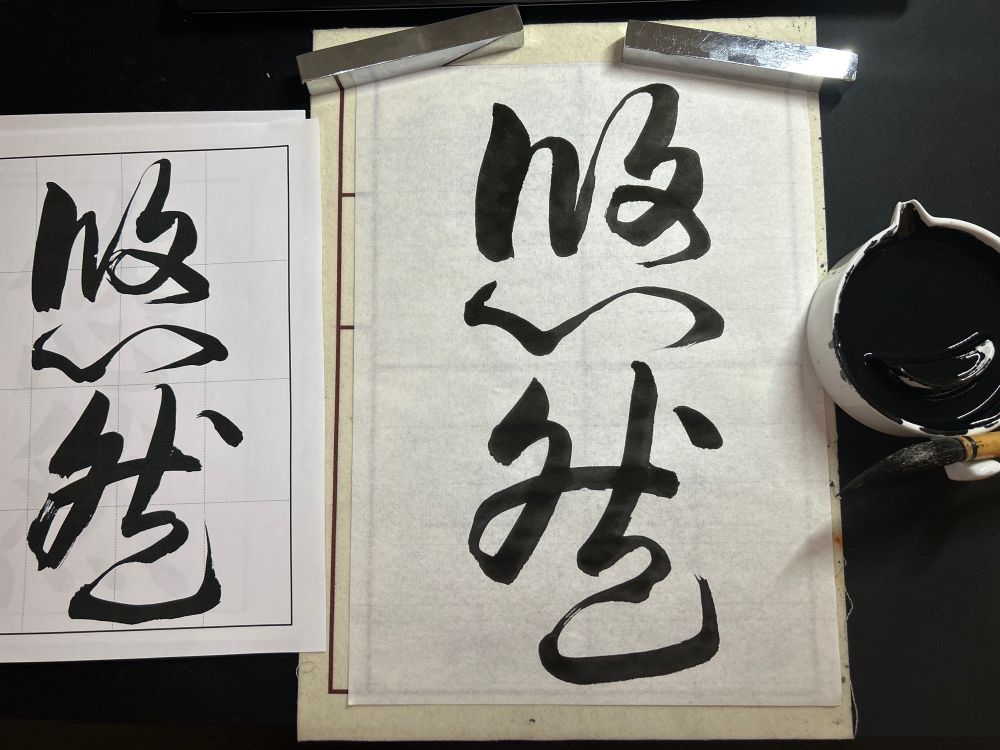 悠然
悠然